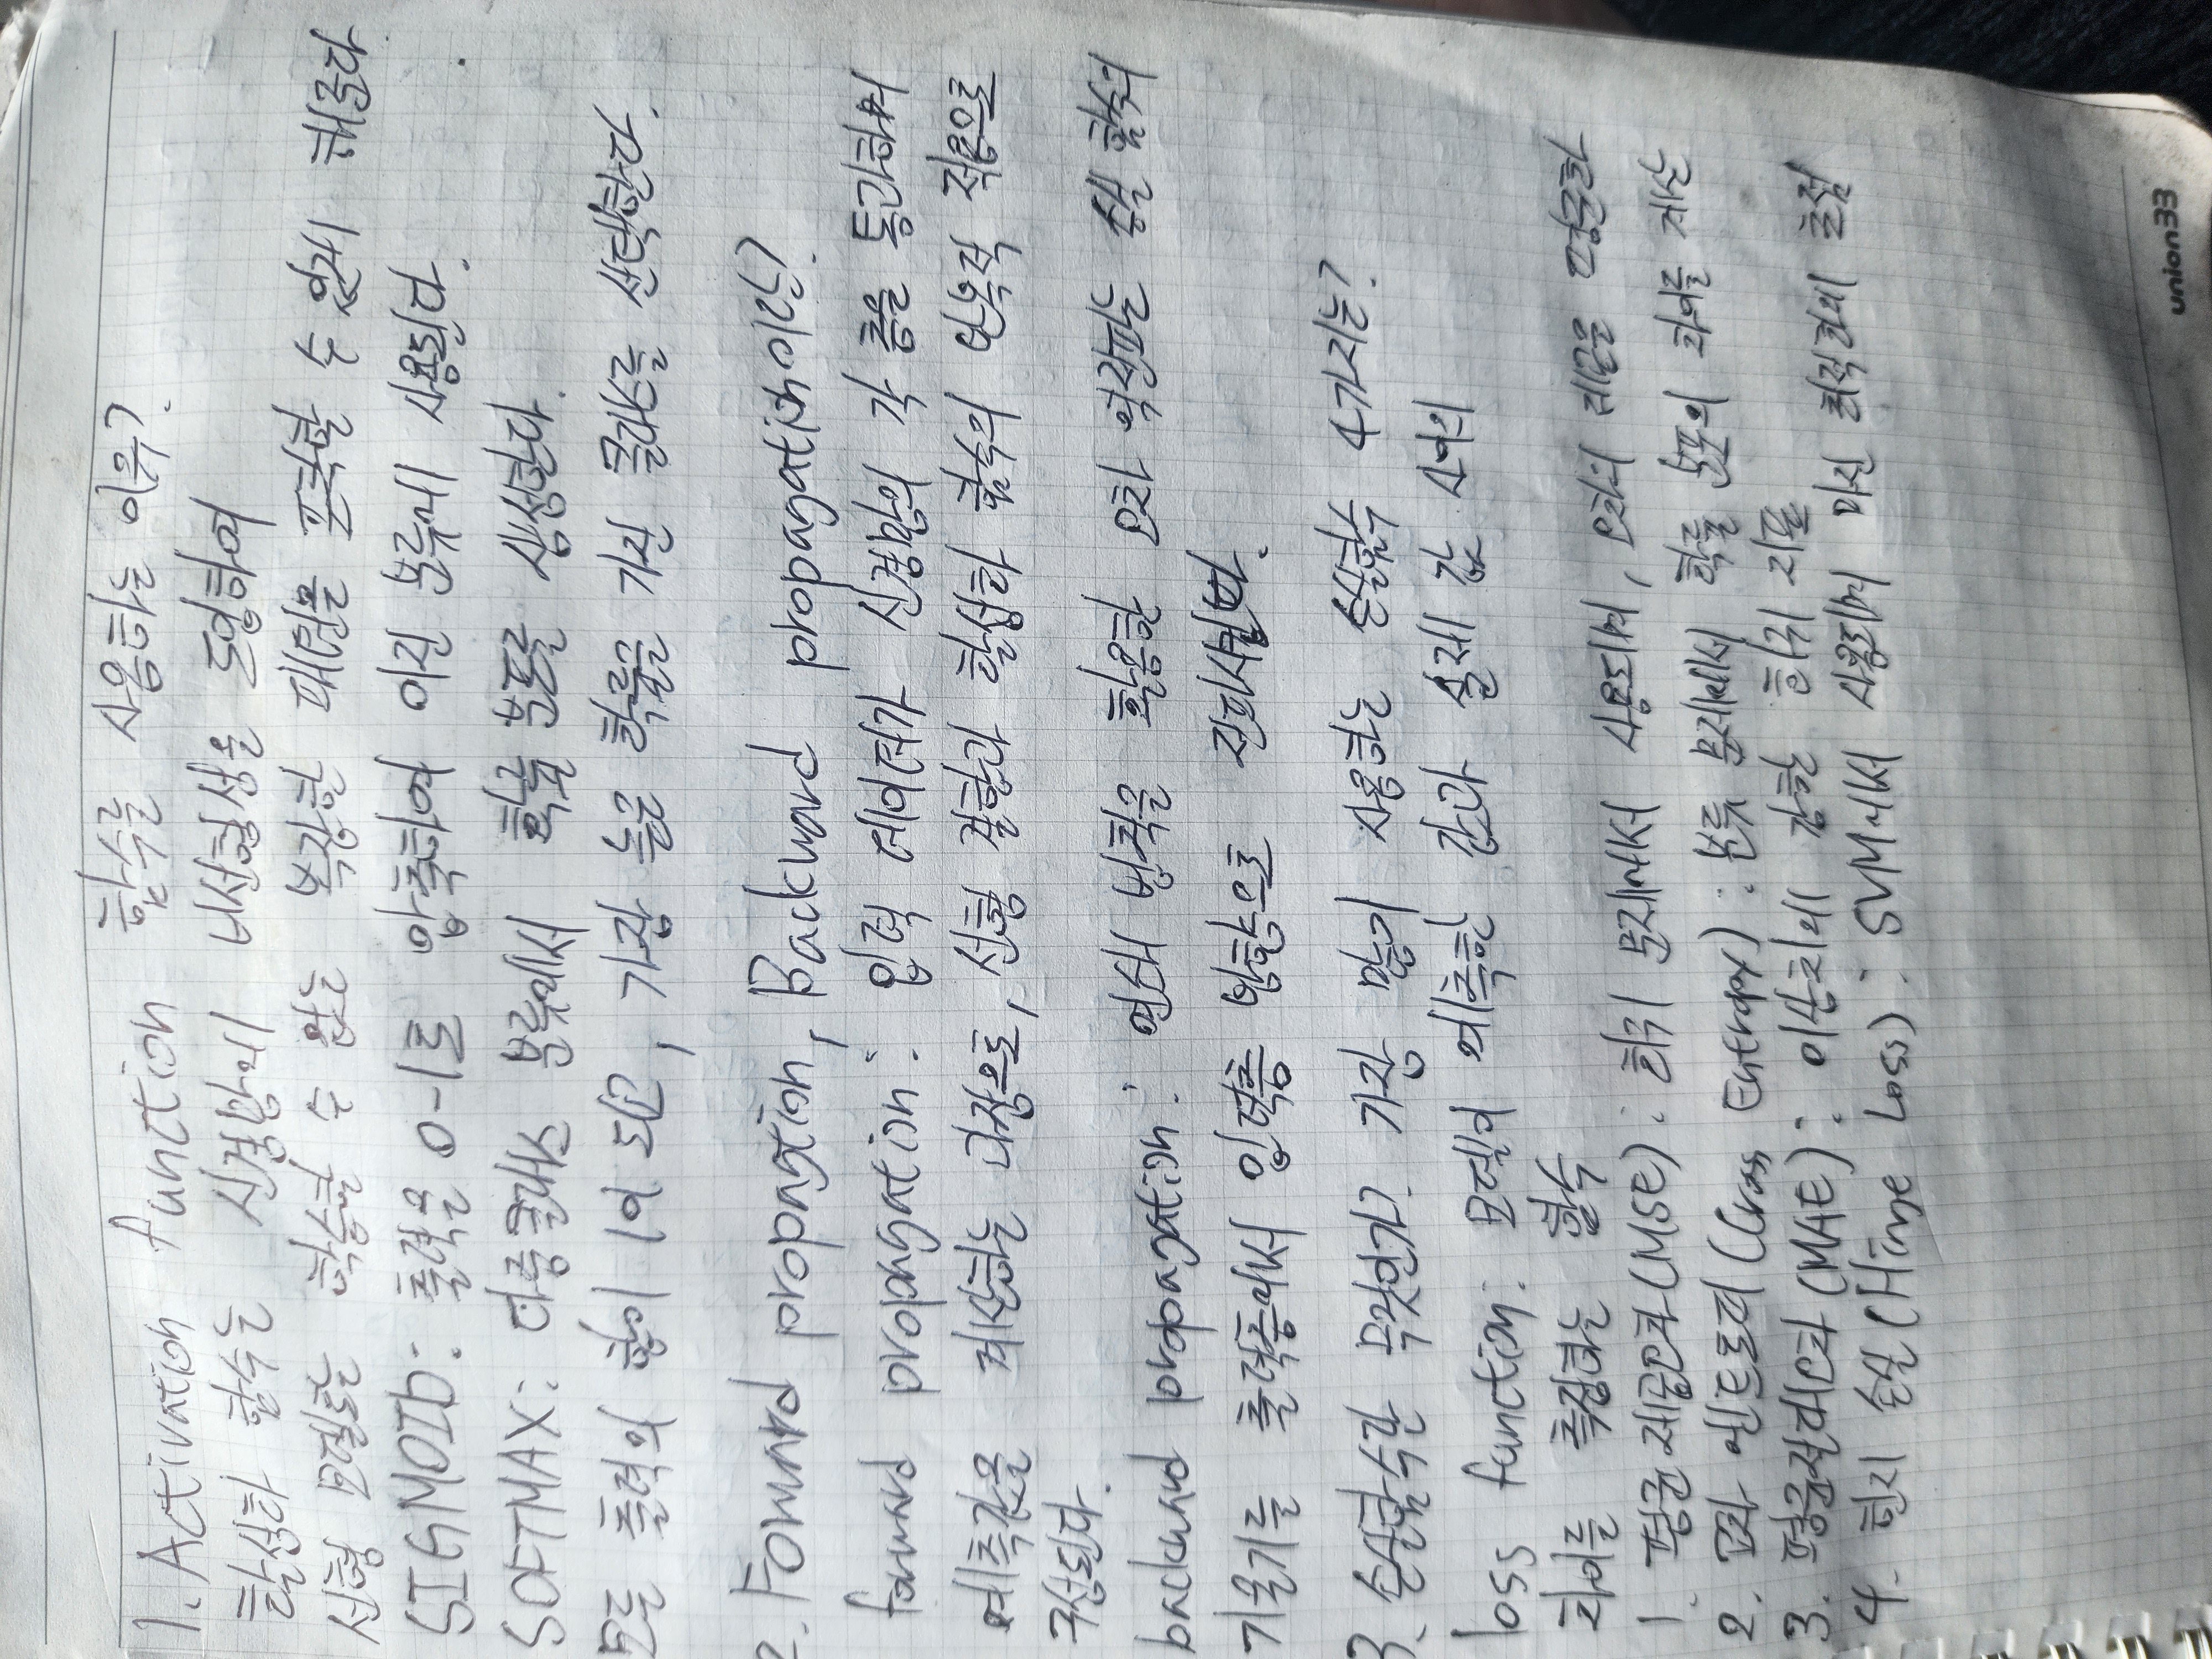 1. Activation function 함수를 사용하는 이유?
활성화 함수는 신경망에 비선형성을 도입하여
선형 모델로는 학습할 수 없는 복잡한 패턴을 포착할 수 있게 해준다
SIGMOID: 출력을 0-1로 압축하여 이진 분류에 사용된다.
SOFTMAX: 다중클래스 분류에서 확률 분포를 생성한다.
모든 출력의 합이 1이 되고, 가장 높은 확률을 가진 클래스를 선택한다.
2. Forward propagtion, Backward propagation이란?
forward propagation: 입력 데이터가 신경망의 각 층을 통과하며
예측값을 계산하는 과정으로, 선형 결합과 활성화 함수의 반복적 적용으로
구성된다.
backward propagation: 연쇄 법칙을 활용한 오차 역전파는 손실 함수의
기울기를 출력층에서 입력층 방향으로 전파시킨다.
3. 손실함수란 무엇인가? 가장 많이 사용하는 손실함수 4가지는?
loss function: 모델이 예측한 값과 실제 값 사이의
차이를 측정하는 함수
1. 평균제곱오차(MSE): 회귀 문제에서 사용되며, 오차의 제곱을 평균화
2. 교차 엔트로피(Cross Entropy): 분류 문제에서 확률 분포의 차이를 계산
3. 평균절대오차(MAE): 이상치에 강한 회귀 지표
4. 힌지 손실(Hinge Loss): SVM에서 사용되며 마진 최적화에 초점
union33